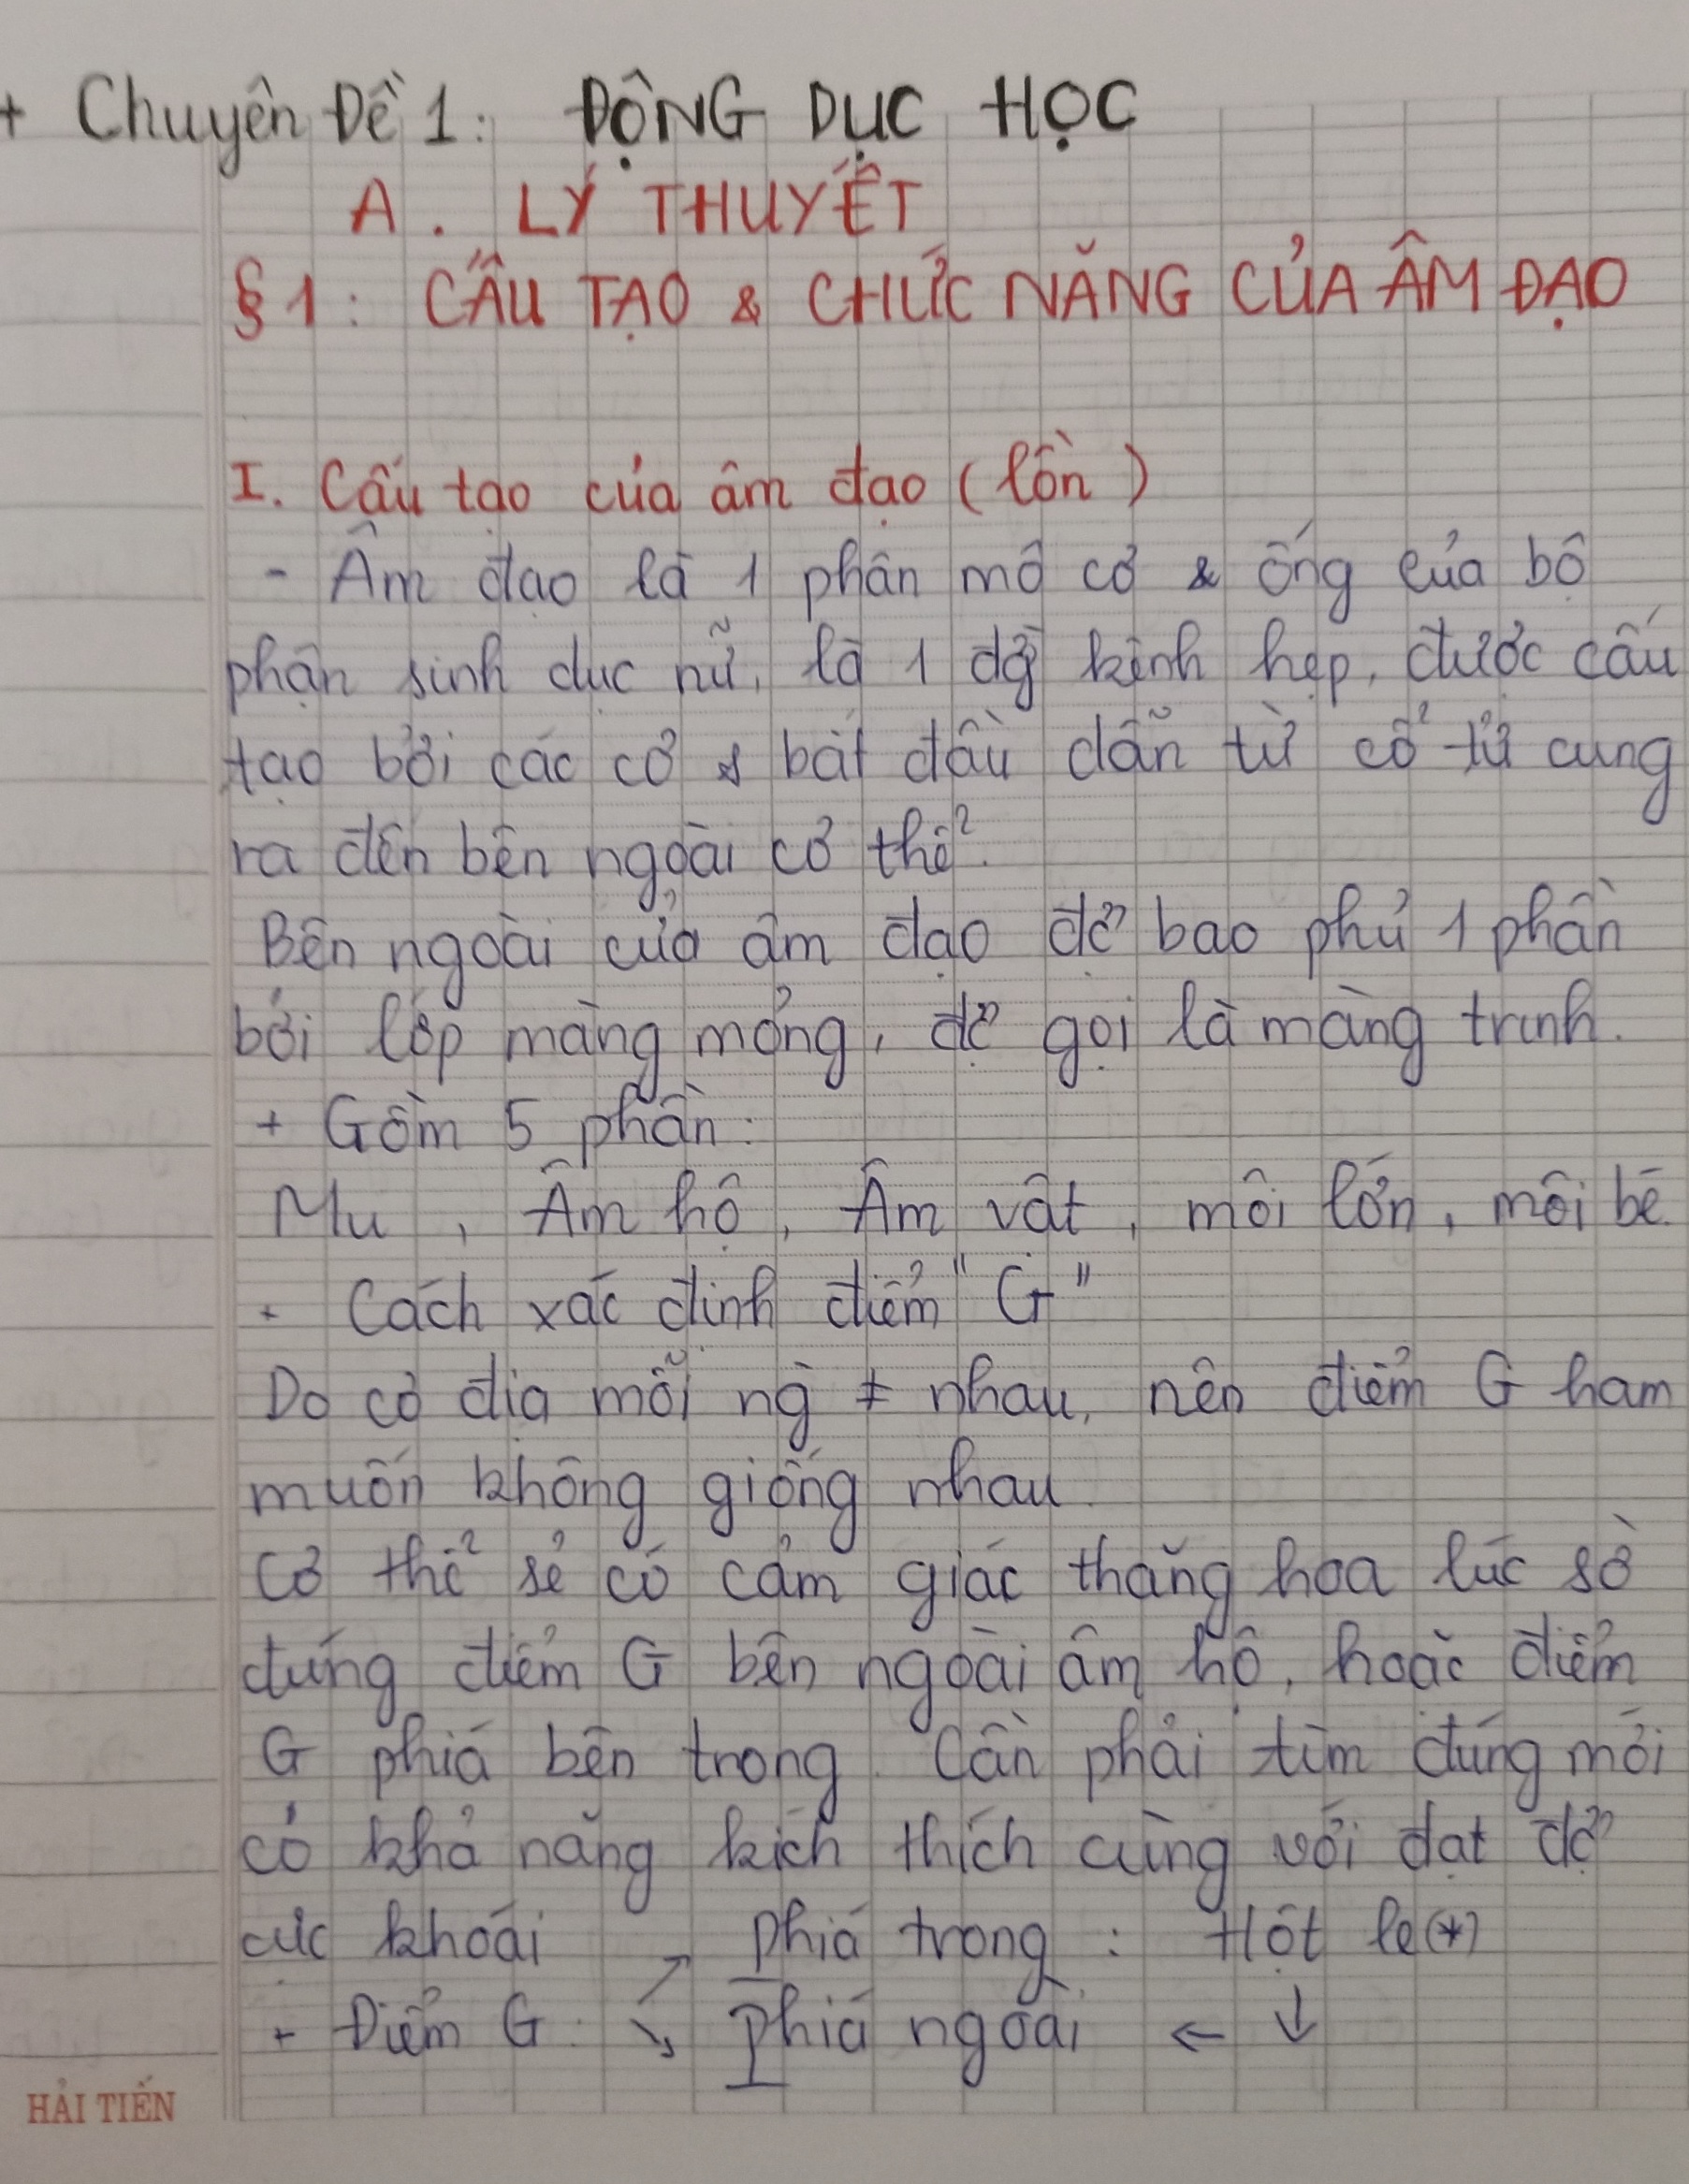 + Chuyên Đề 1: ĐỘNG DỤC HỌC
A. LÝ THUYẾT
§1: CẤU TẠO & CHỨC NĂNG CỦA ÂM ĐẠO
I. Cấu tạo của âm đạo (lồn)
- Âm đạo là 1 phần mô cơ & ống của bộ
phận sinh dục nữ, là 1 kênh hẹp, được cấu
tạo bởi các cơ & bắt đầu dẫn từ cổ tử cung
ra đến bên ngoài cơ thể.
Bên ngoài của âm đạo đc bao phủ 1 phần
bởi lớp màng mỏng, đc gọi là màng trinh.
+ Gồm 5 phần:
Mu, Âm hộ, Âm vật, môi lớn, môi bé.
- Cách xác định điểm "G"
Do cơ địa mỗi ng ≠ nhau, nên điểm G ham
muốn không giống nhau.
Cơ thể sẽ có cảm giác thăng hoa lúc sờ
đúng điểm G bên ngoài âm hộ, hoặc điểm
G phía bên trong. Cần phải tìm đúng mới
có khả năng kích thích cùng với đạt đc
cực khoái
↗ Phía trong : Hột le (*)
+ Điểm G: ↘ Phía ngoài ← ↓
HẢI TIẾN